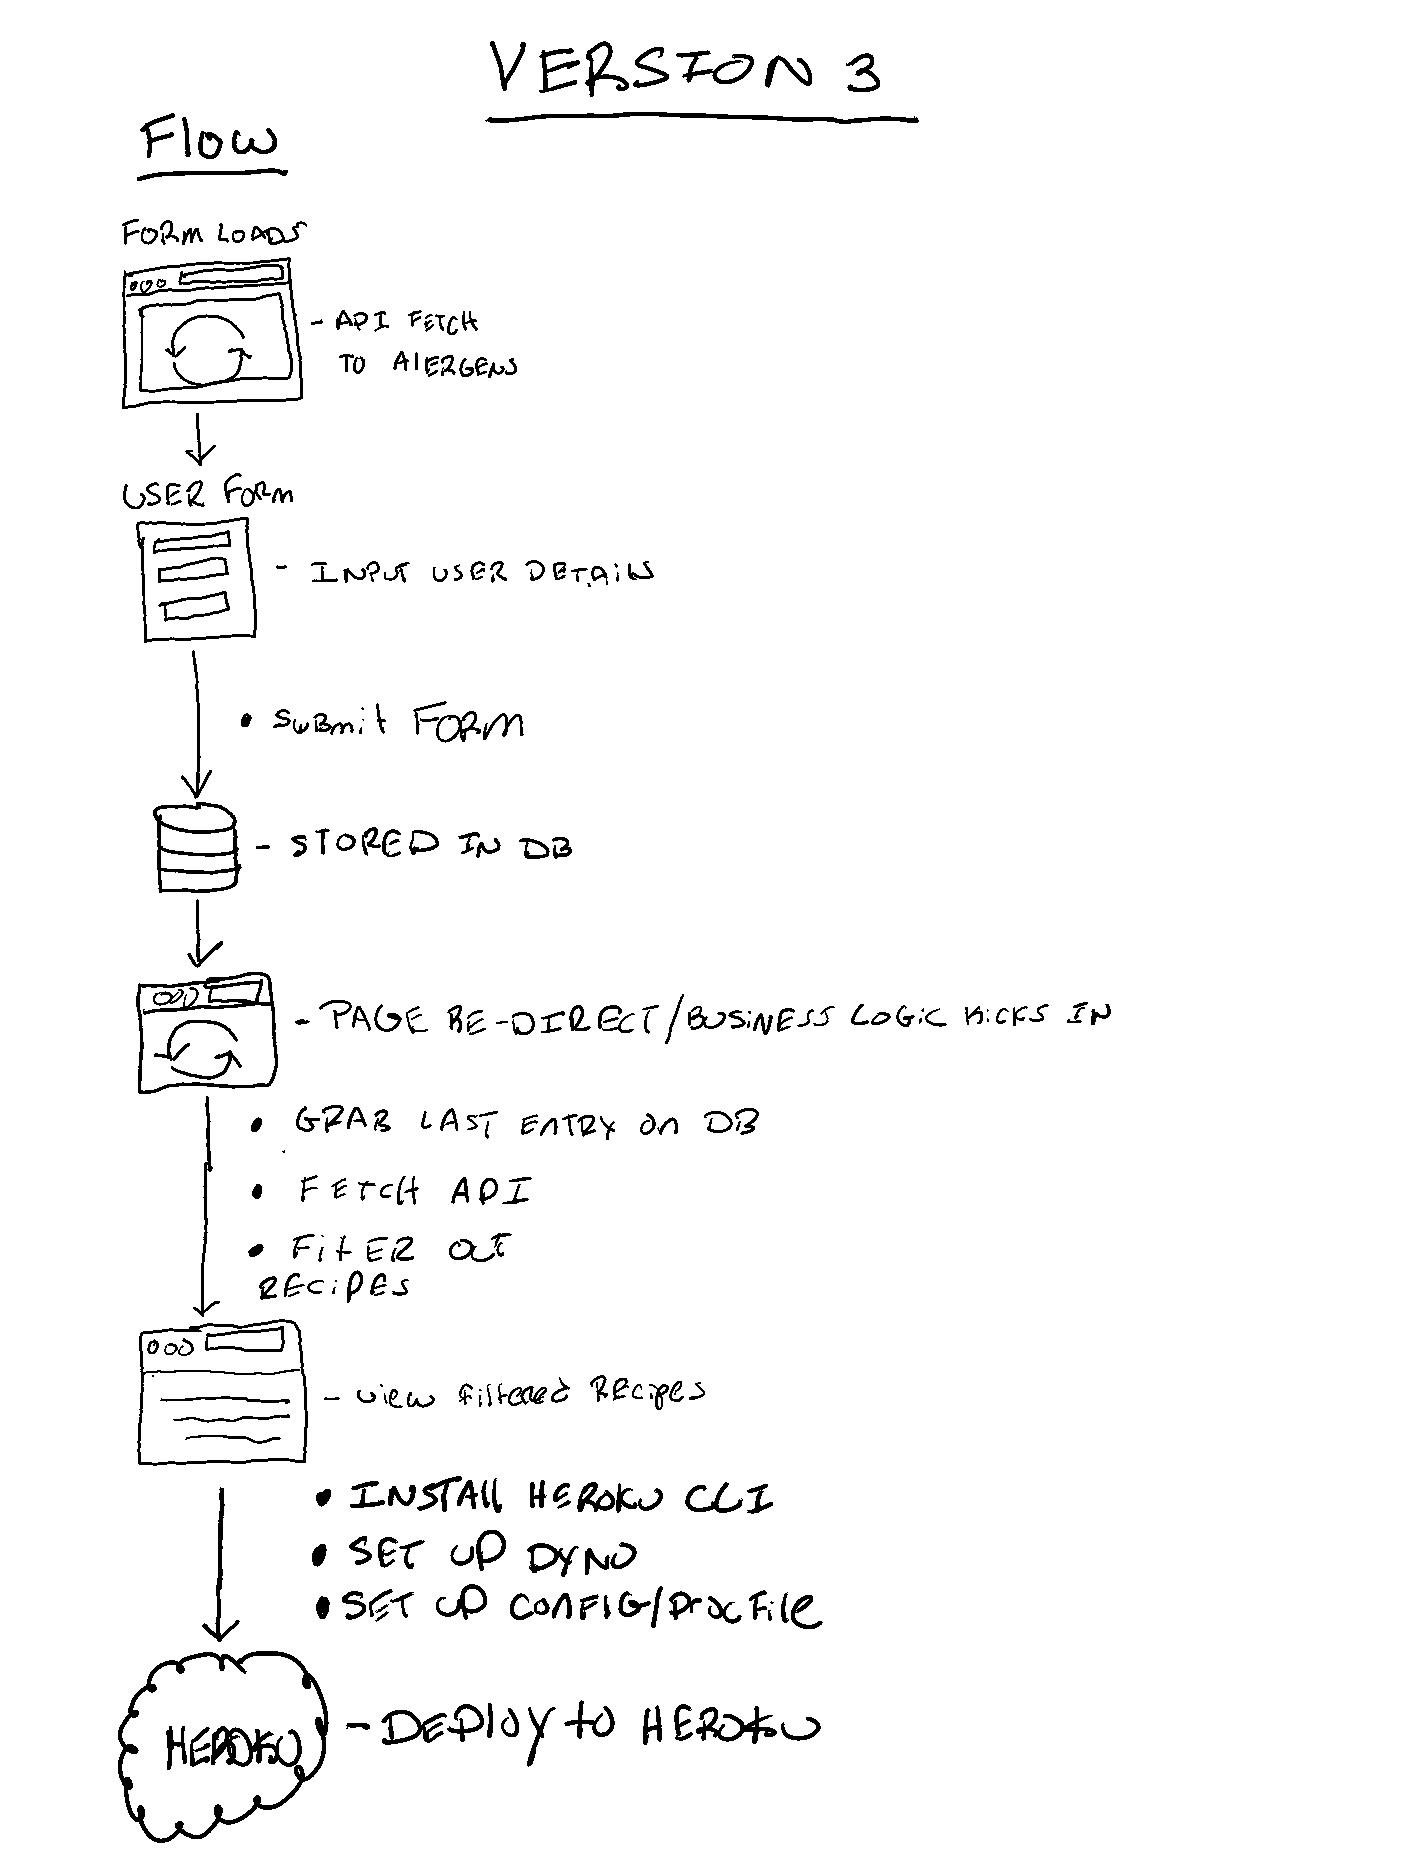 VERSION 3
Flow
FORM LOADS
- API FETCH
TO AlERGENS
USER FORM
- INPUT USER DETAILS
• SUBmit FORM
- STORED IN DB
- PAGE RE-DIRECT/BUSINESS LOGIC KICKS IN
• GRAB LAST ENTRY ON DB
• FETCH API
• FilTER OUT
RECIPES
- view filtered RECipes
• INSTAll HEROKU CLI
• SET UP DYNO
• SET UP CONFIG/PROCFile
HEROKU
- DEPlOY to HEROKU